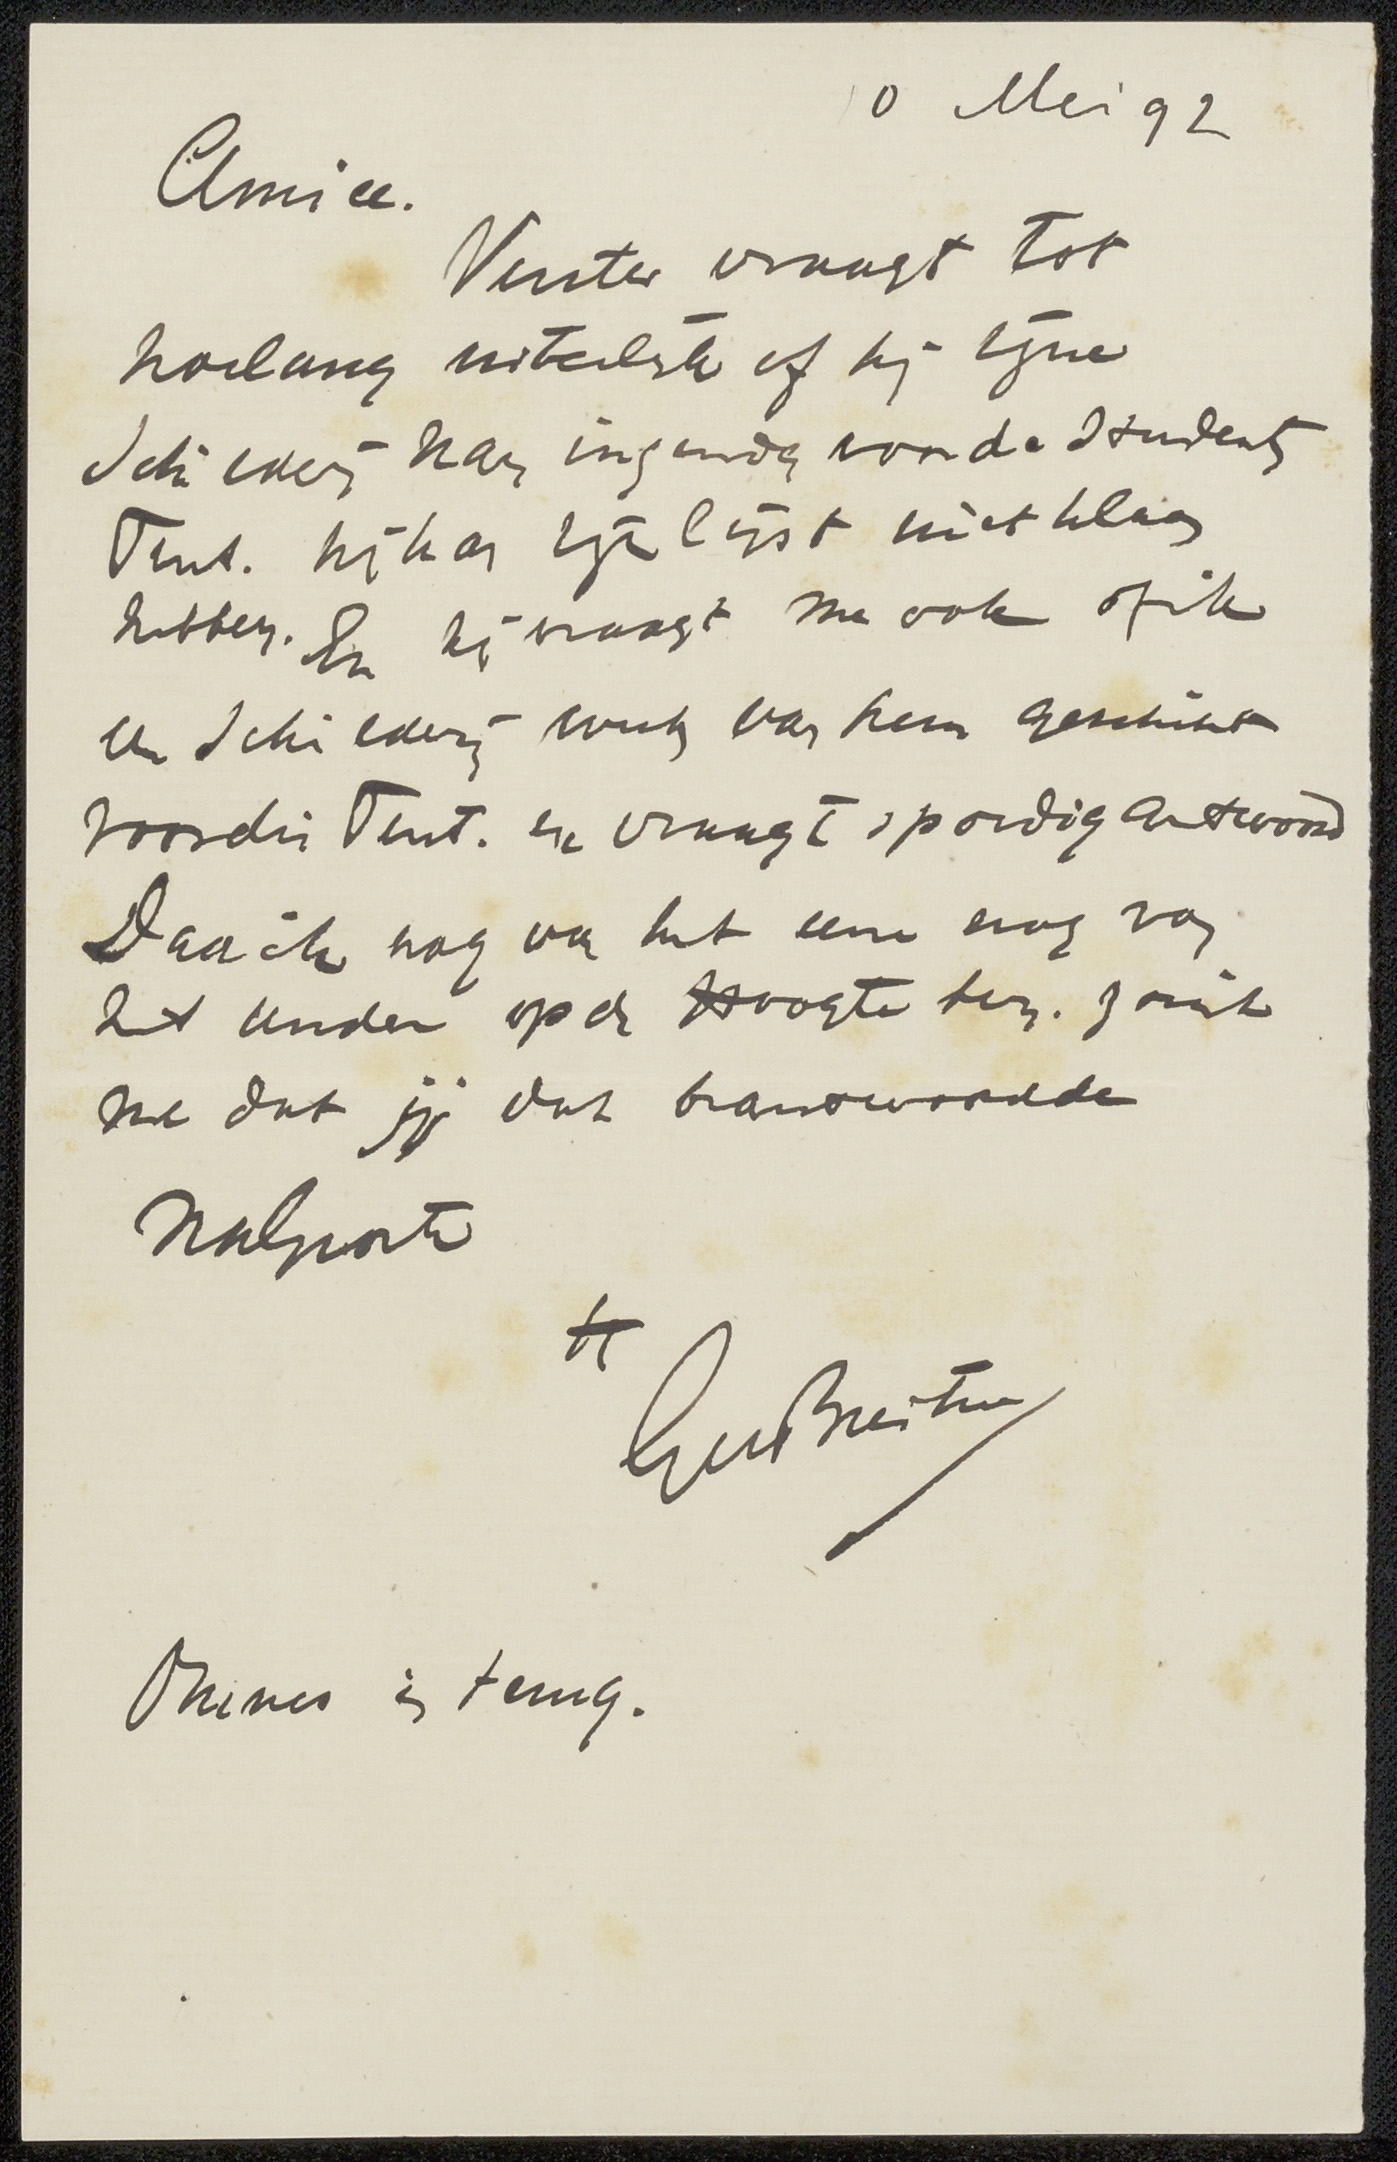 10 Mei 92
Amice.
Venter vraagt tot
hoelang uiterlijk of hij zijne
Schilderij kan inzenden voor de Studenten
Tent. hij kan zijn lijst niet klaar
hebben. En hij vraagt me ook of ik
een Schilderij weet van hem geschikt
voor die Tent. en vraagt spoedig antwoord
Daar ik nog van het eene nog van
het andere op de Hoogte ben. zou ik
me dat jij dat beantwoordde
Na Groete
tt
GH Breitner
is terug.